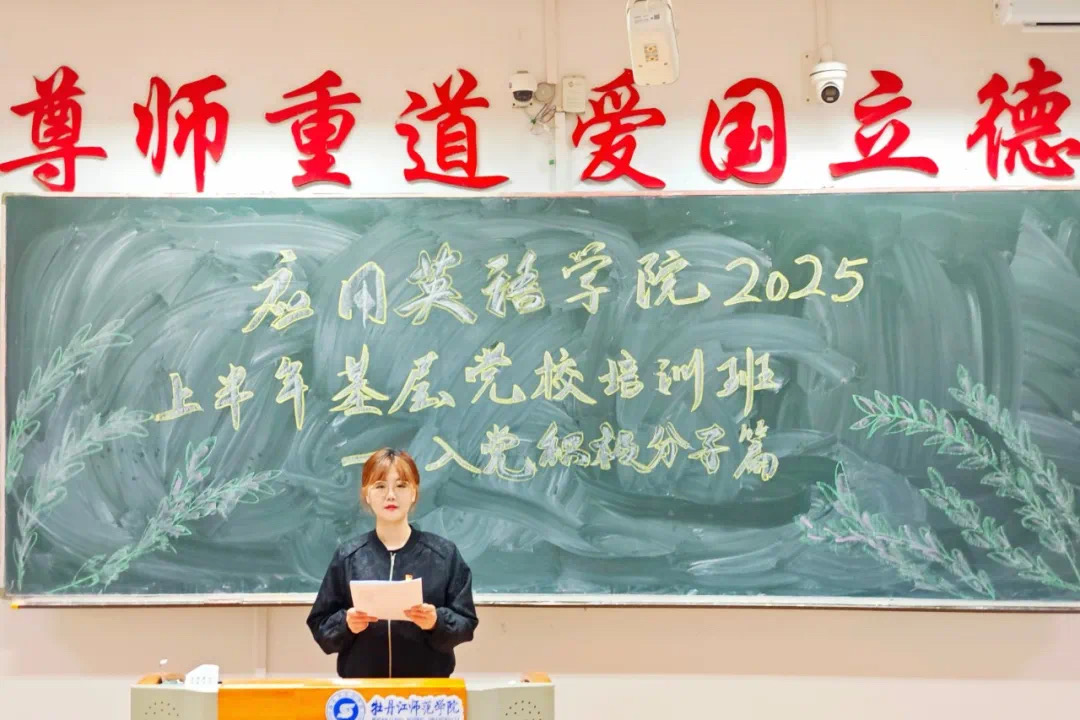 尊师重道 爱国立德
应用英语学院2025
上半年基层党校培训班
——入党积极分子篇
牡丹江师范学院